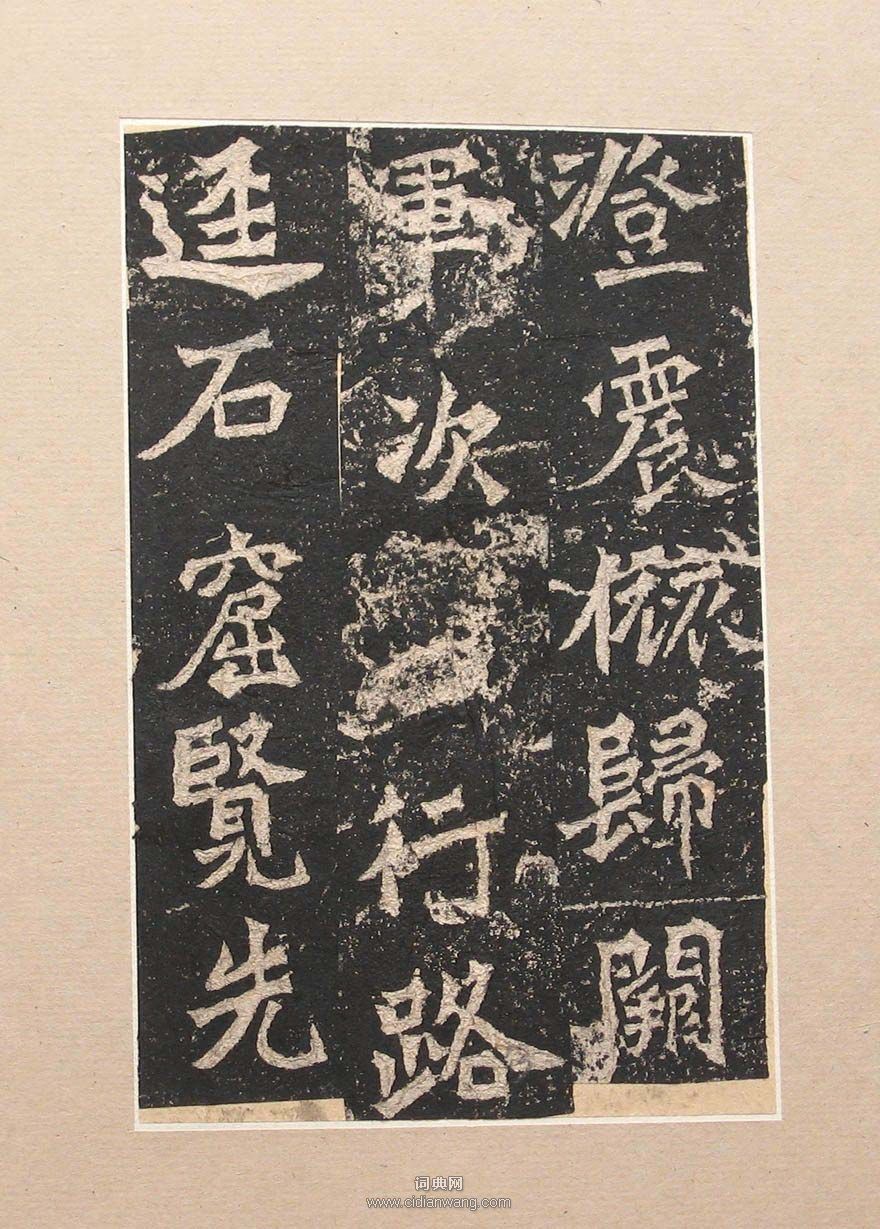 澄震旅歸闕
軍次行路
逕石窟覽先
词典网
www.cidianwang.com